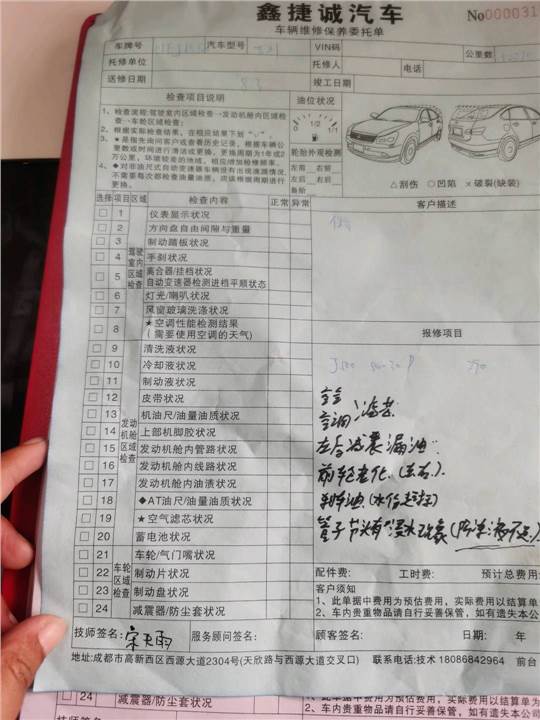 鑫捷诚汽车
No0000031
车辆维修保养委托单
车牌号 汽车型号 VIN码 公里数
托修单位 托修人 电话
送修日期 竣工日期
检查项目说明
1、检查流程:驾驶室内区域检查→发动机舱内区域检查→车轮区域检查;
2、根据实际检查结果,在相应结果下划“√”。
3、★是指先询问客户或查看历史记录,根据车辆公里数或时间进行清洁或更换。更换周期为1年或2万公里,环境较差的地域,相应增加检修频率。
4、◆对非油尺式自动变速器车辆没有出现渗漏情况,不需要每次都检查油量油质,应该根据周期进行更换。
油位状况
0 1/2 1/1
轮胎外观检测
左前 右前
左后 右后
备胎
△刮伤 ○凹陷 ×破裂(缺装)
选择 项目 区域 检查内容 正常 异常
客户描述
驾驶室内区域检查
1 仪表显示状况
2 方向盘自由间隙与重量
3 制动踏板状况
4 手刹状况
5 离合器/挂档状况
自动变速器检测进档平顺状态
6 灯光/喇叭状况
7 风窗玻璃洗涤状况
8 ★空调性能检测结果
(需要使用空调的天气)
报修项目
发动机舱区域检查
9 清洗液状况
10 冷却液状况
11 制动液状况
12 皮带状况
13 机油尺/油量油质状况
14 上部机脚胶状况
15 发动机舱内管路状况
16 发动机舱内线路状况
17 发动机舱内油渍状况
18 ◆AT油尺/油量油质状况
19 ★空气滤芯状况
20 蓄电池状况
左后减震漏油
前轮老化(左右)
车轮区域检查
21 车轮/气门嘴状况
22 制动片状况
23 制动盘状况
24 减震器/防尘套状况
配件费: 工时费: 预计总费用
客户须知
1、此单据中费用为预估费用,实际费用以结算单
2、车内贵重物品请自行妥善保管,如有遗失本公
技师签名: 宋天雨 服务顾问签名: 顾客签名: 日期: 年
地址:成都市高新西区西源大道2304号(天欣路与西源大道交叉口) 联系电话:技术 18086842964 前台
24 减震器/防尘套状况
1、此单据中费用为预估费用,实际费用以结算
2、车内贵重物品请自行妥善保管,如有遗失本公司